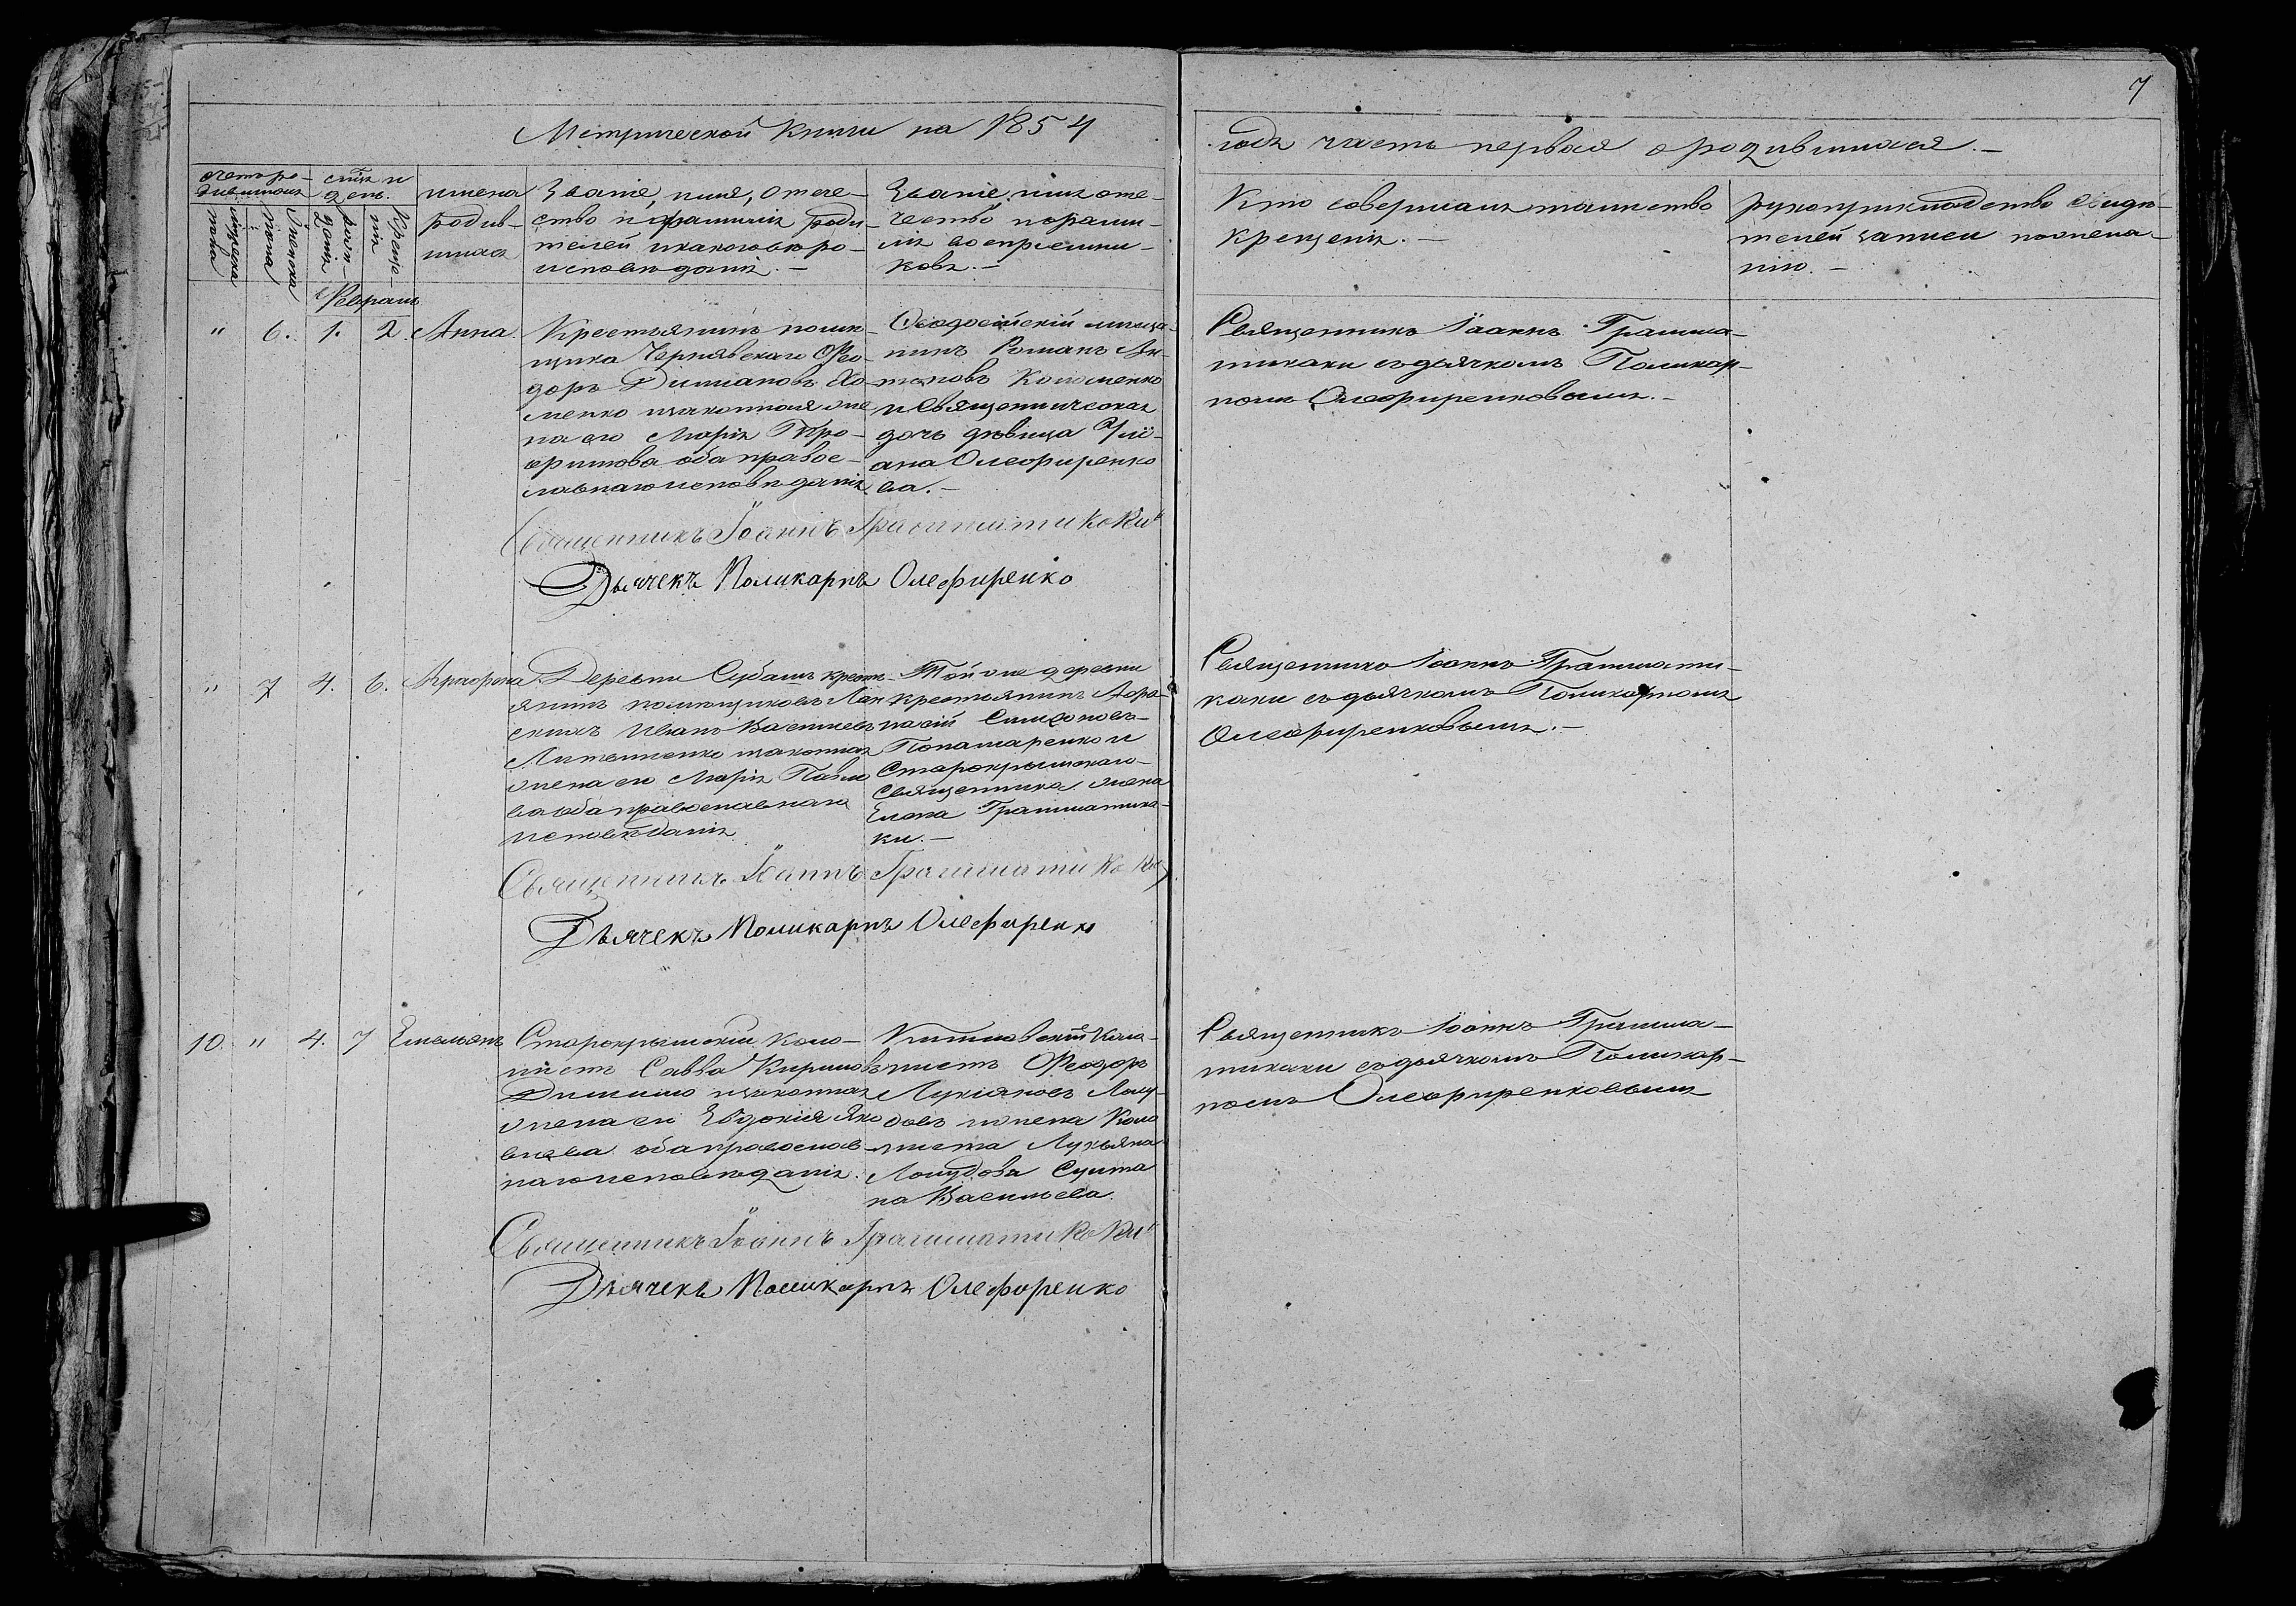 7
Метрической книги на 1854
годъ часть первая о родившихся.-
счетъ ро-
дившихся
мѣсяцъ и
день.
имена
родив-
шихся
Званіе, имя, отече-
ство и фамилія роди-
телей и какого вѣро-
исповѣданія.-
Званіе, имя, оте-
чество и фами-
лія воспріемни-
ковъ.-
Кто совершалъ таинство
крещенія.-
рукоприкладство свидѣ-
телей записи по жела-
нію.-
мужеска
пола
женска
пола
рожде-
нія
креще-
нія
Февраль
" 6. 1. 2. Анна.
Крестьянинъ помѣ-
щика Чернявскаго Фео-
доръ
менко и законная же-
на его Марія Тро-
фимова оба правос-
лавнаго исповѣданія.
Ѳеодосійскій мѣща-
нинъ Романъ Ан-
тоновъ Коломенко
и Священническая
дочь дѣвица Улі-
ана Олефиренко
ва.-
Священникъ Іоаннъ Грамма-
тикаки съ дьячкомъ Поликар-
помъ Олефиренковымъ.-
Священникъ Іоаннъ Грамматикаки
Дьячекъ Поликарпъ Олефиренко
" 7 4. 6.
Деревни Субашъ крестъ-
янинъ помѣщиковъ Лан-
скихъ Иванъ Васильевъ
Литвиненко и законная
жена его Марія Павло
ва оба православнаго
исповѣданія.
Той же деревни
крестьянинъ Афа-
насій Симоновъ
Понамаренко и
Старокрымскаго
Священника жена
Елена Грамматика-
ки.-
Священникъ Іоаннъ Граммати-
каки съ дьячкомъ Поликарпомъ
Олефиренковымъ.-
Священникъ Іоаннъ Грамматикаки
Дьячекъ Поликарпъ Олефиренко
10. " 4. 7 Емельянъ
Старокрымскій коло-
нистъ Савва Кириловъ
Димишо и законная
жена его Евдокія Яко
влева оба православ-
наго исповѣданія.
Кишлавскій коло-
нистъ Ѳеодоръ
Лукіановъ
и жена коло
ниста Лукьяна
Султа
на Васильева.
Священникъ Іоаннъ Грамма-
тикаки съ дьячкомъ Поликар-
помъ Олефиренковымъ
Священникъ Іоаннъ Грамматикаки
Дьячекъ Поликарпъ Олефиренко